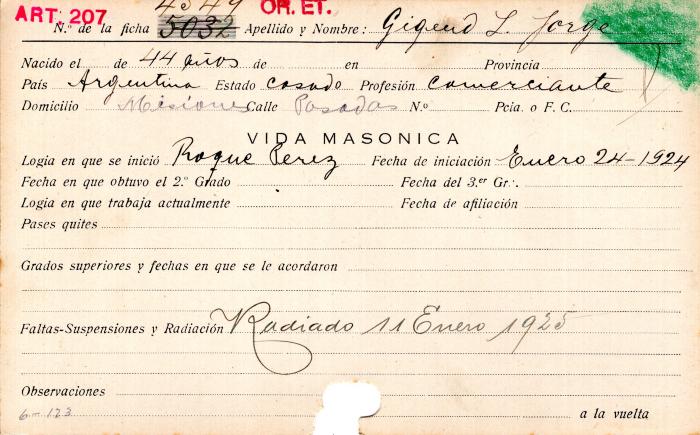 ART. 207 OR. ET.
4549
N.º de la ficha 5032 Apellido y Nombre: Gigend L. Jorge
Nacido el 44 años de de en Provincia
País Argentina Estado casado Profesión comerciante
Domicilio Misiones Calle Posadas N.º Pcia. o F. C.
VIDA MASONICA
Logia en que se inició Roque Perez Fecha de iniciación Enero 24-1924
Fecha en que obtuvo el 2.º Grado Fecha del 3.er Gr∴
Logia en que trabaja actualmente Fecha de afiliación
Pases quites
Grados superiores y fechas en que se le acordaron
Faltas-Suspensiones y Radiación Radiado 11 Enero 1925
Observaciones
6-123 a la vuelta